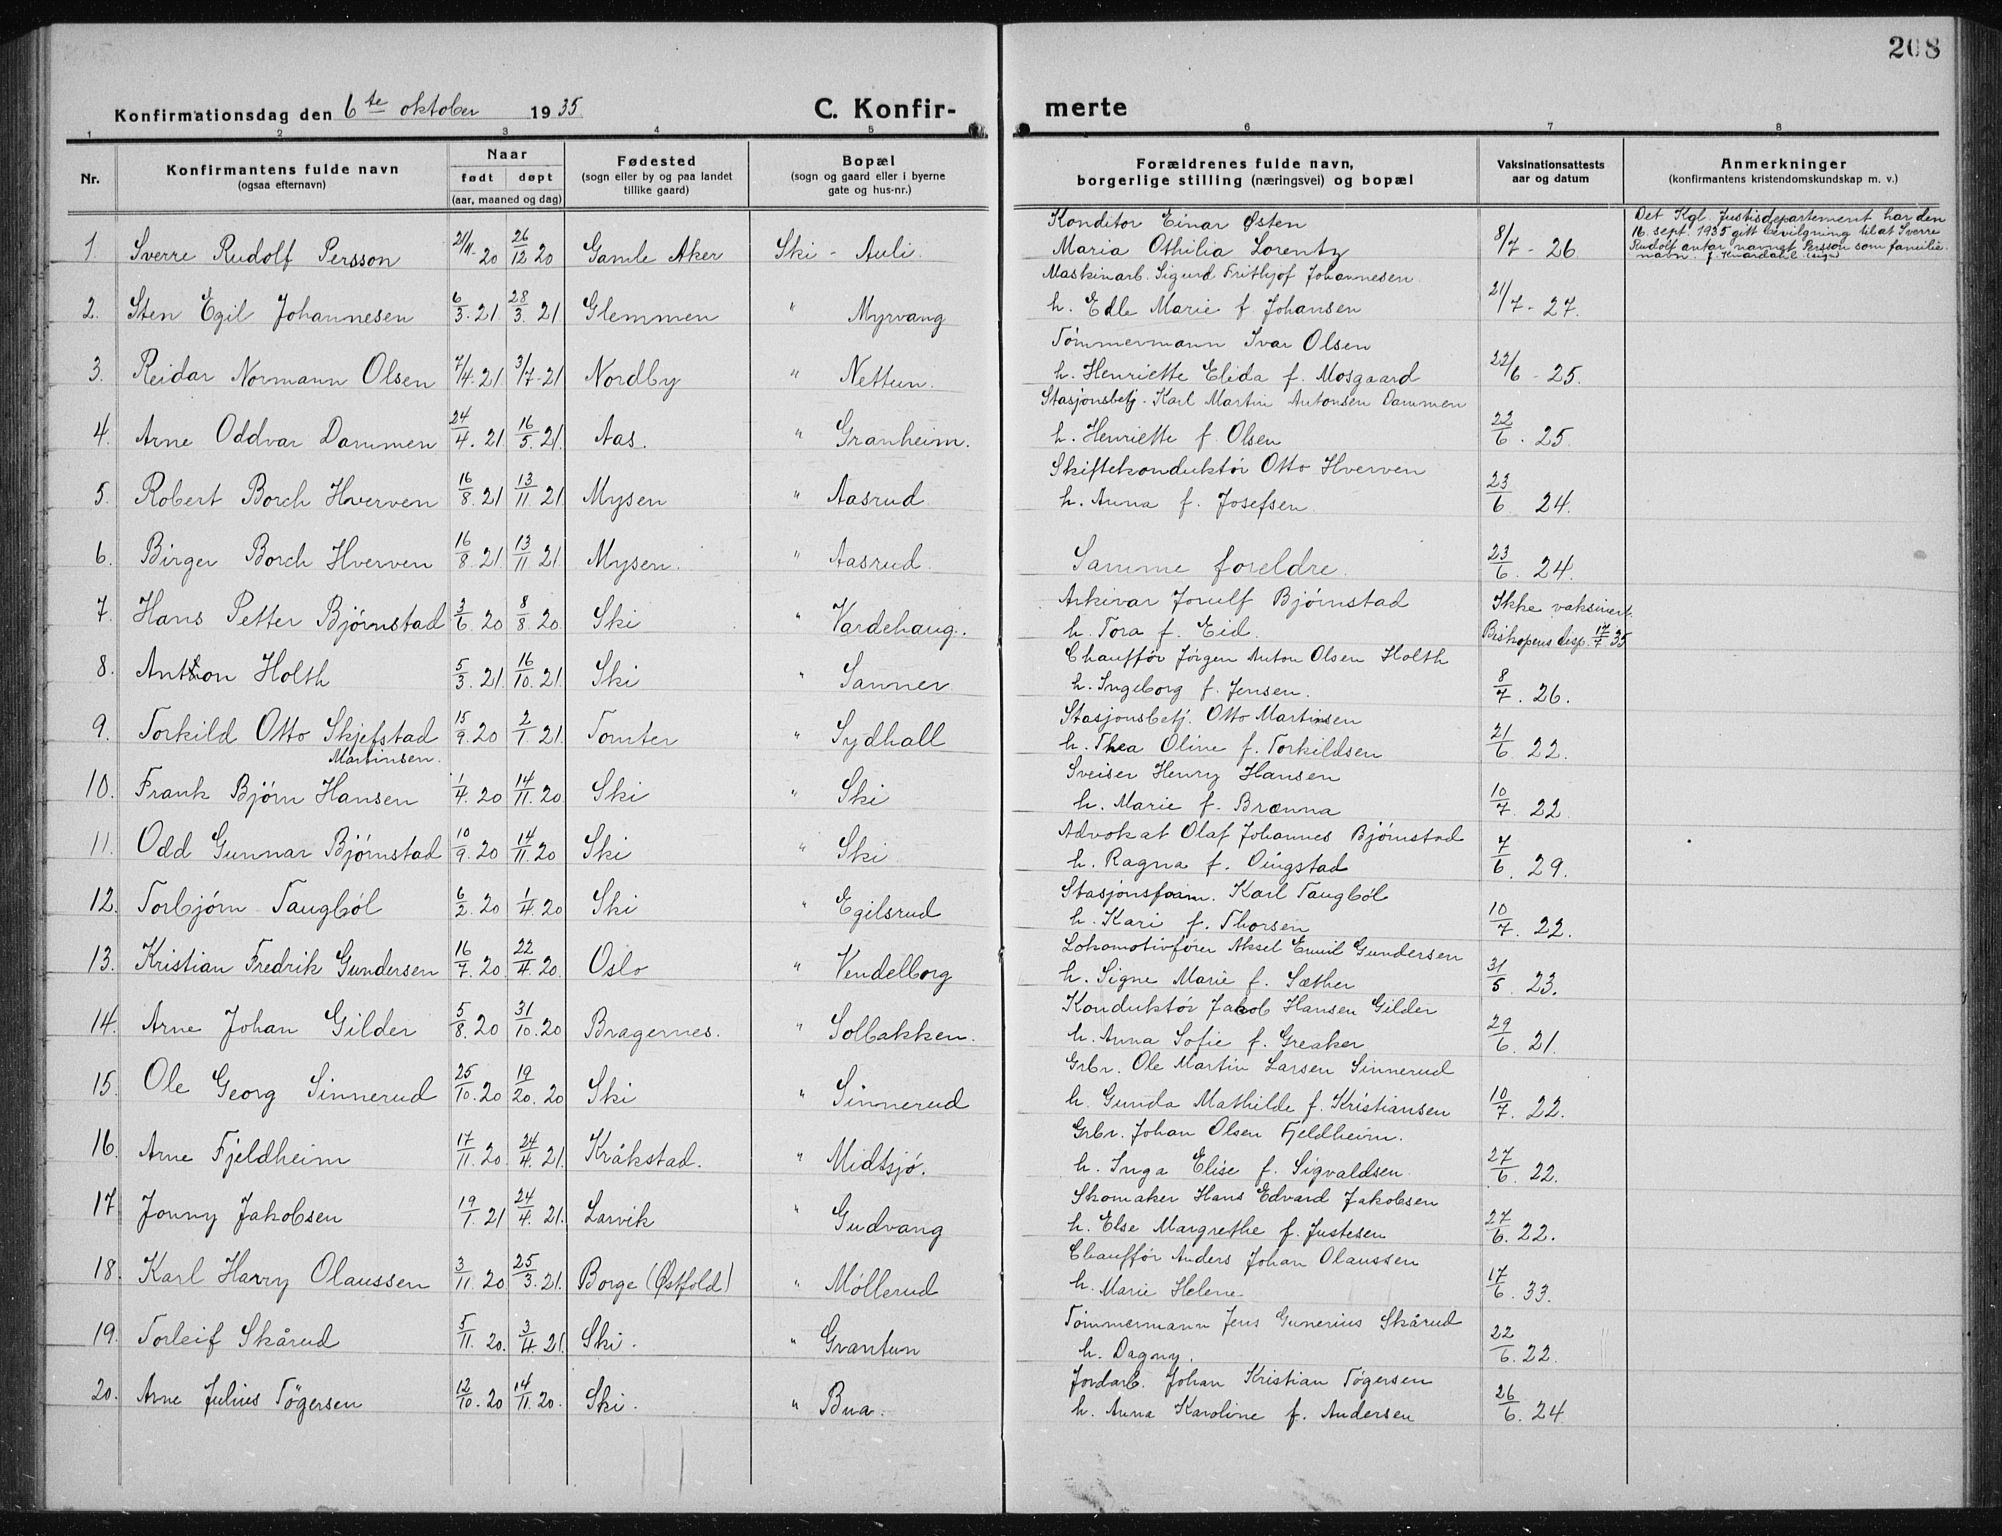 208
Konfirmationsdag den 6te oktober 1935
C. Konfir-
merte
1 2 3 4 5 6 7 8
Nr.
Konfirmantens fulde navn
(ogsaa efternavn)
Naar
født døpt
(aar, maaned og dag)
Fødested
(sogn eller by og paa landet
tillike gaard)
Bopæl
(sogn og gaard eller i byerne
gate og hus-nr.)
Forældrenes fulde navn,
borgerlige stilling (næringsvei) og bopæl
Vaksinationsattests
aar og datum
Anmerkninger
(konfirmantens kristendomskundskap m. v.)
Konditor Einar Østen
Det Kgl. Justisdepartement har den
16. sept. 1935 gitt bevilgning til at Sverre
Rudolf antar navnet Persson som familie-
navn. J. Kvardahl (sign)
1. Sverre Rudolf Persson 21/11-20 26/12 20 Gamle Aker Ski - Auli Maria Othilia Lorentz 8/7-26
Maskinarb. Sigurd Frithjof Johannesen
2. Sten Egil Johannesen 6/3.21 28/3.21 Glemmen " Myrvang h. Edle Marie f. Johansen 21/7-27.
Tømmermann Ivar Olsen
3. Reidar Normann Olsen 7/4.21 3/7-21 Nordby " Nettun. h. Henriette Elida f. Mosgaard 22/6-25.
Stasjonsbetj. Karl Martin Antonsen Dammen
4. Arne Oddvar Dammen 24/4.21 16/5.21. Aas. " Granheim. h. Henriette f. Olsen 22/6.25.
Skiftekonduktør Otto Hverven
5. Robert Borch Hverven 16/8.21 13/11.21. Mysen " Aasrud h. Anna f. Josefsen 23/6 24.
6. Birger Borch Hverven 16/8.21 13/11 21. Mysen. " Aasrud. Samme foreldre. 23/6.24.
Arkivar Jorulf Bjørnstad
7. Hans Petter Bjørnstad 3/6 20 8/8.20 Ski " Vardehaug. h. Tora f. Eid. Ikke vaksinert.
Biskopens disp. 17/7 35
Chauffør Jørgen Anton Olsen Holth
8. Anthon Holth 5/3.21 16/10.21. Ski " Sanner h. Ingeborg f. Jensen. 8/7.26.
Stasjonsbetj. Otto Martinsen
9. Torkild Otto Skjefstad 15/9.20 2/1.21. Tomter " Sydhall h. Thea Oline f. Torkildsen 21/6.22.
Martinsen.
Sveiser Henry Hansen
10. Frank Bjørn Hansen 1/4.20 14/11.20. Ski " Ski h. Marie f. Brænna 10/7.22.
Advokat Olaf Johannes Bjørnstad
11. Odd Gunnar Bjørnstad 10/9.20 14/11 20 Ski " Ski h. Ragna f. Dingstad 7/6.29.
Stasjonsform. Karl Taugbøl
12. Torbjørn Taugbøl 6/2.20 1/4.20 Ski " Egilsrud h. Kari f. Thorsen 10/7.22.
Lokomotivfører Aksel Emil Gundersen
13. Kristian Fredrik Gundersen 16/7.20 22/4.20. Oslo " Vendelborg h. Signe Marie f. Sæther 31/5 23.
Konduktør Jakob Hansen Gilder
14. Arne Johan Gilder 5/8.20 31/10.20 Bragernes. " Solbakken. h. Anna Sofie f. Greaker 29/6.21.
Grbr. Ole Martin Larsen Sinnerud
15. Ole Georg Sinnerud 25/10.20 19/20.20 Ski " Sinnerud h. Gunda Mathilde f. Kristiansen 10/7.22.
Grbr. Johan Olsen Fjeldheim.
16. Arne Fjeldheim 17/11.20. 24/4.21. Kråkstad. " Midtsjø. h. Inga Elise f. Sigvaldsen. 27/6.22.
Skomaker Hans Edvard Jakobsen
17. Jonny Jakobsen 19/1.21 24/4.21. Larvik " Gudvang h. Else Margrethe f. Justesen 27/6.22.
Chauffør Anders Johan Olaussen
18. Karl Harry Olaussen 3/11.20 25/3.21. Borge (Østfold) " Møllerud h. Marie Helene 17/6.33.
Tømmermann Jens Gunerius Skårud
19. Torleif Skårud 5/11.20. 3/4.21. Ski. " Grantun h. Dagny. 22/6.22.
Jordarb. Johan Kristian Tøgersen
20. Arne Julius Tøgersen 12/10.20 14/11.20. Ski. " Bua. h. Anna Karoline f. Andersen 26/6.24